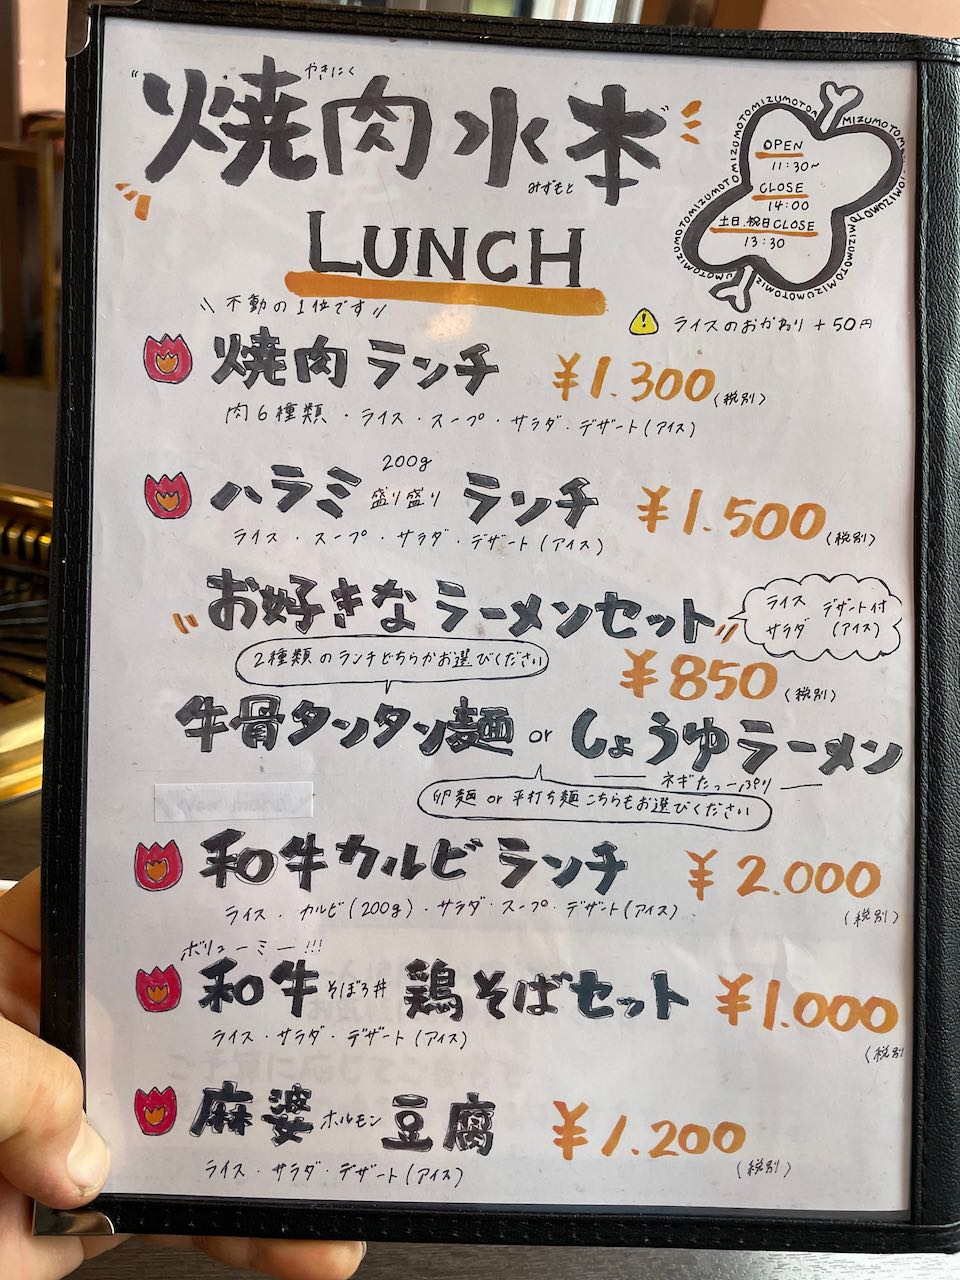 やきにく
"焼肉水本"
みずもと
LUNCH
OPEN
11:30~
CLOSE
14:00
土日.祝日CLOSE
13:30
\\ 不動の1位です //
ライスのおかわり +50円
焼肉ランチ ¥1.300 (税別)
肉6種類・ライス・スープ・サラダ・デザート(アイス)
200g
ハラミ盛り盛りランチ ¥1.500 (税別)
ライス・スープ・サラダ・デザート(アイス)
お好きなラーメンセット
ライス デザート付
サラダ (アイス)
2種類のランチどちらかお選びください
¥850 (税別)
牛骨タンタン麺 or しょうゆラーメン
ネギたっーぷり
卵麺 or 平打ち麺こちらもお選びください
和牛カルビランチ ¥2.000
(税別)
ライス・カルビ(200g)・サラダ・スープ・デザート(アイス)
ボリューミー!!!
和牛そぼろ丼 鶏そばセット ¥1.000
(税別
ライス・サラダ・デザート(アイス)
麻婆ホルモン豆腐 ¥1.200
(税別)
ライス・サラダ・デザート(アイス)